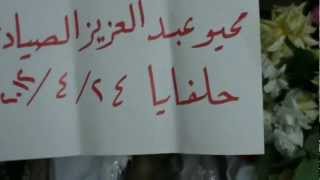 محيو عبد العزيز الصياد
حلفايا ٢٤ / ٤ /